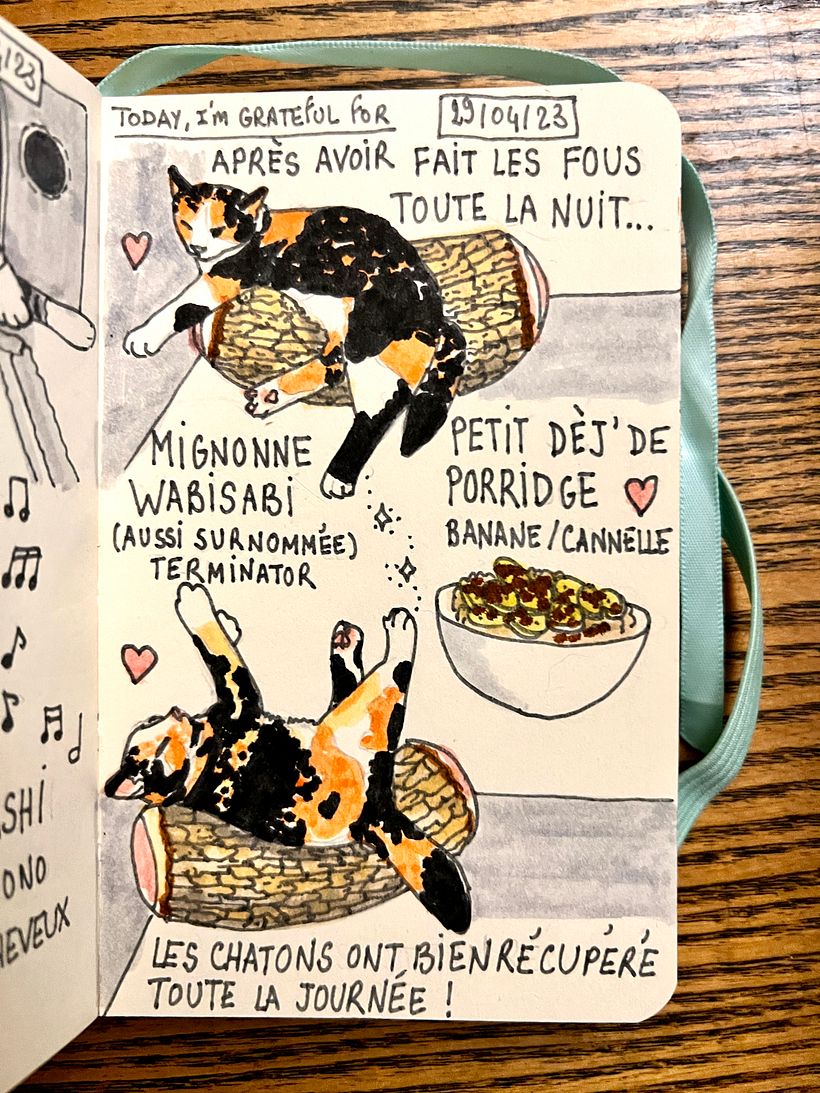 /23
SHI
ONO
HEVEUX
TODAY, I'M GRATEFUL FOR 29/04/23
APRÈS AVOIR FAIT LES FOUS
TOUTE LA NUIT...
MIGNONNE
WABISABI
(AUSSI SURNOMMÉE)
TERMINATOR
PETIT DÈJ' DE
PORRIDGE
BANANE/CANNELLE
LES CHATONS ONT BIEN RÉCUPÉRÉ
TOUTE LA JOURNÉE !